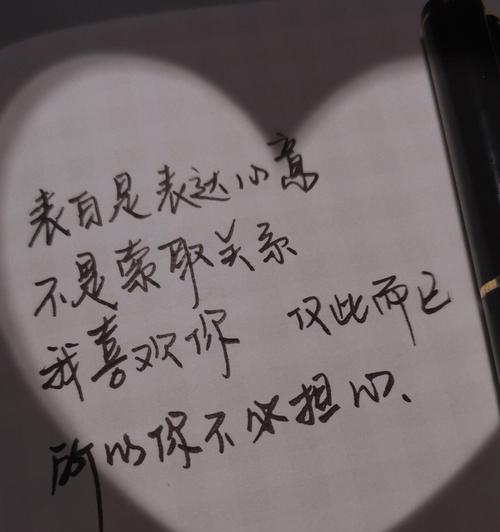 表白是表达心意
不是索取关系
我喜欢你 仅此而已
所以你不必担心、